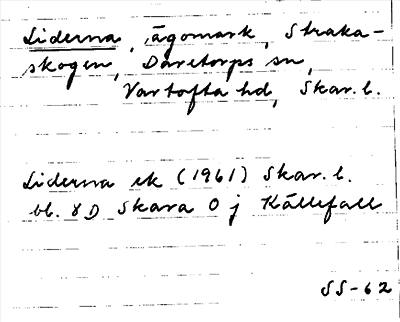 Liderna, ägomark, Straka-
skogen, Daretorps sn,
Vartofta hd, Skar. l.
Liderna ek (1961) Skar. l.
bl. 8D Skara 0 j Källefall
SS-62